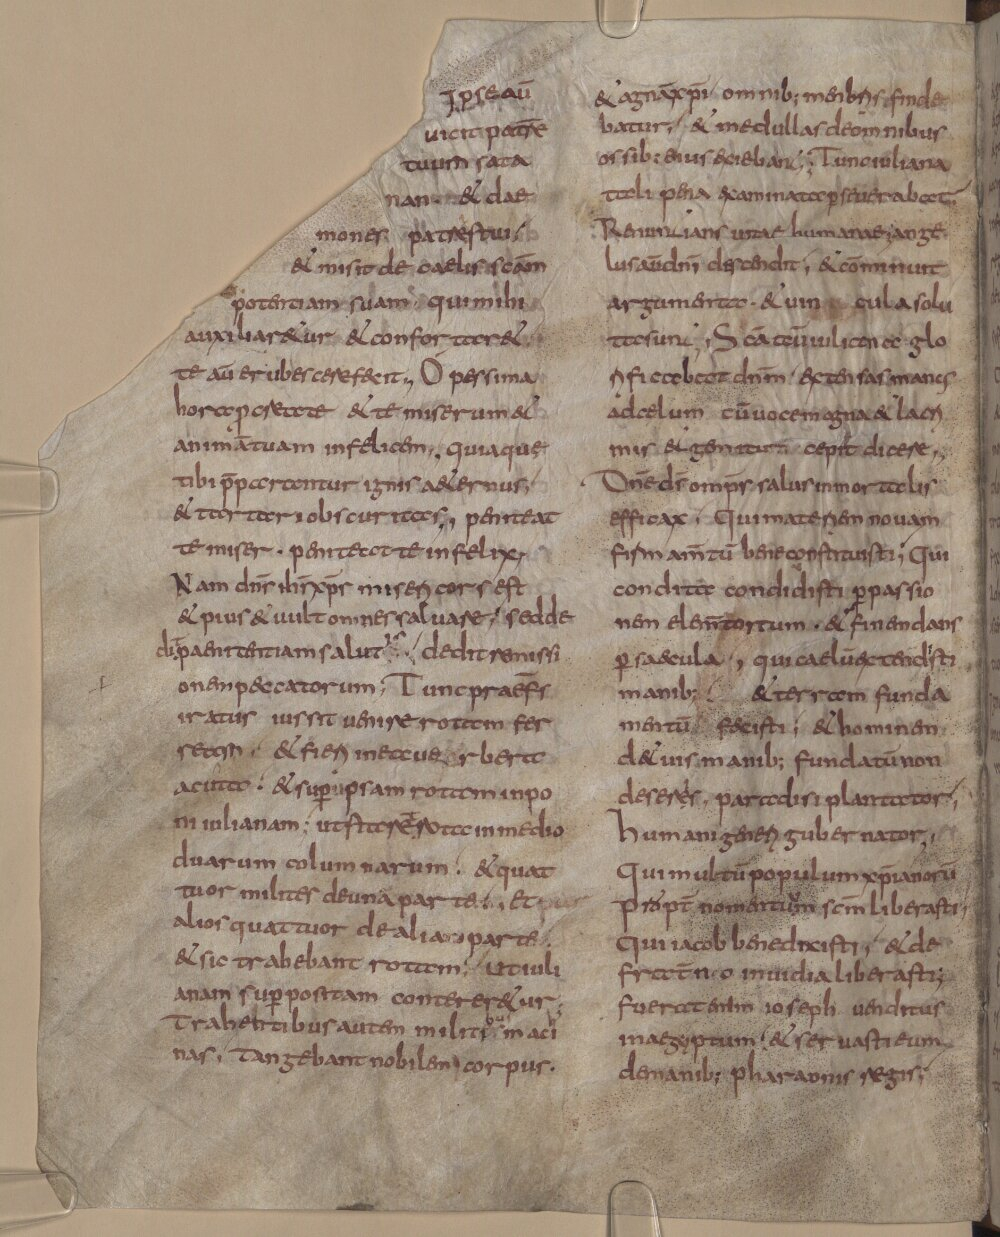 Ipse aū
uicit patrē
tuum sata
nan & dae
mones patris tui;
& misit de caelis scām
potentiam suam qui mihi
auxiliar&ur & confortar&
te aū erubescere fecit; O pessima
hora p creatā te & te miserum &
animā tuam infelicem; quia que
tibi pp̄arantur ignis aeternus;
& tartari obscuritas; peniteat
te miser. peniteat te infelix;
Nam dns ihs xps misericors est
& pius & uult omnes saluare; sed de
dit paenitentiam salutis; dedit remissi
onem peccatorum; Tunc praefs
iratus iussit uenire rotam fer
ream. & fieri in ea uerbera
acuta. & sup ipsam rotam inpo
ni iulianam; ut star& rota in medio
duarum columnarum. & quat
tuor milites de una parte; et
alios quattuor de alia parte.
& sic trahebant rotam; ut iuli
anam suppositam conterer&ur;
Trahentibus autem militibus maci
nas. Tangebant nobilem corpus.
& magna xpi omnib; membris finde
batur; & medullas de omnibus
ossib; eius exiebant; Tunc iuliana
tali pena examinata p̄seuerabat;
Renuntians uitae humanae; ange
lus aū dni descendit; & cōminuit
argumenta. & uin cula solu
ta sunt; Scā aū iuliana glo
rificabat dnm extensas manus
ad celum cū uoce magna & lacri
mis & gemitu cepit dicere;
Dne ds omps salus inmortalis
efficax. Qui materiem nouam
firmamtū bene constituisti; Qui
condita condidisti p passio
nem elemtorum. & finem dans
p saecula; qui caelū extendisti
manib; & terram funda
mentū fecisti; & hominem
de tuis manib; fundatū non
deseres. paradisi plantator;
humani generis gubernator;
Qui multū populum xpianorū
Propt nomen tuum scm liberasti;
Qui iacob benedixisti; & de
fratrno inuidia liberasti;
fuerat enim ioseph uenditus
in aegyptum & seruasti eum
de manib; pharaonis regis;